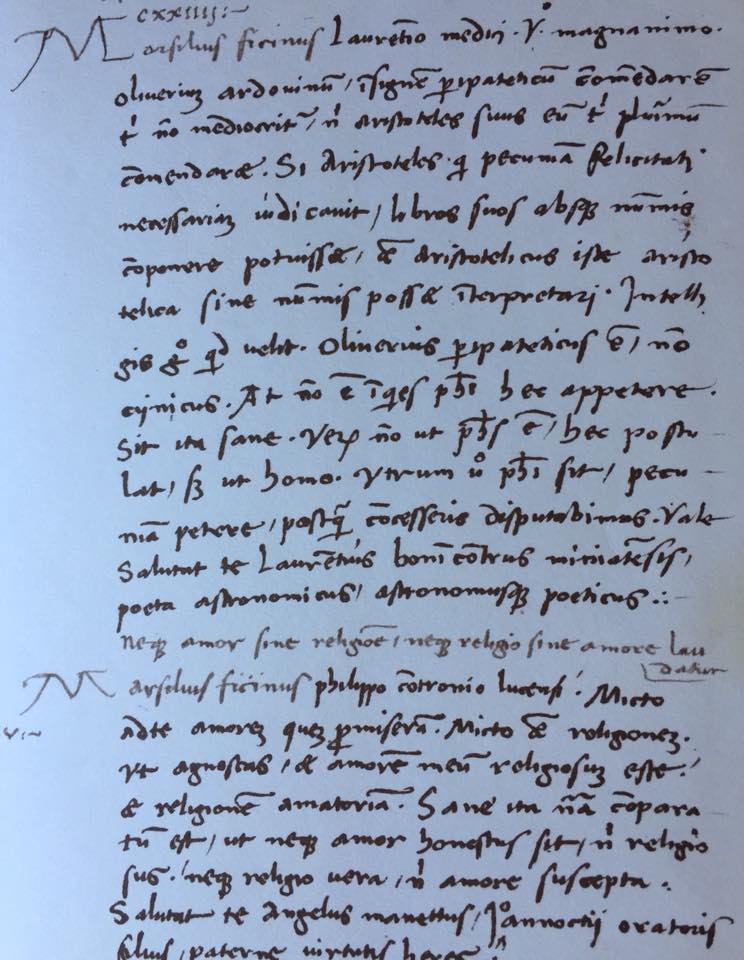 cxxiiij:~
Marsilius ficinus Laurentio medici · V° magnanimo ·
Oliverium ardovinũ / ĩsignẽ p̱ipateticũ cõmẽdarẽ
t' nõ mediocrit' / n' aristoteles suus eũ t' plurimũ
cõmendaræ · Si Aristoteles · q pecuniã felicitati
necessariam iudicavit / libros suos absq; nũmis
cõponere potuissæ / & Aristotelicus iste aristo
telica sine nũmis possæ ĩterpretari · Intelli
gis g° qd velit · Oliuerius p̱ipateticus ẽ / nõ
cynicus · At nõ ẽ
phi hec appetere ·
Sit ita sane · Verꝝ nõ ut phs ẽ / hec postu
lat / sꝫ ut homo · Vtrum u° phi sit / pecu
niã petere / postq̃ cõcesseris disputabimus · Vale
Salutat te Laurẽtius
poeta astronomicus / astronomusq; poeticus ∴~
neq; amor sine religiõe / neq; religio sine amore lau
datur
Marsilius ficinus philippo cõtronio lucensi · Micto
v:~
ad te amorem quem p̱miserã · Micto & religionem ·
Vt agnoscas / & amorẽ meũ religiosum esse ·
& religionẽ amatoriã · Sane ita nãa cõpara
tũ est / ut neq; amor honestus sit / n' religio
sus · neq; religio vera / n' amore suscepta ∴
Salutat te Angelus manettus / Iannoctii oratoris
filius / paterne virtutis heres